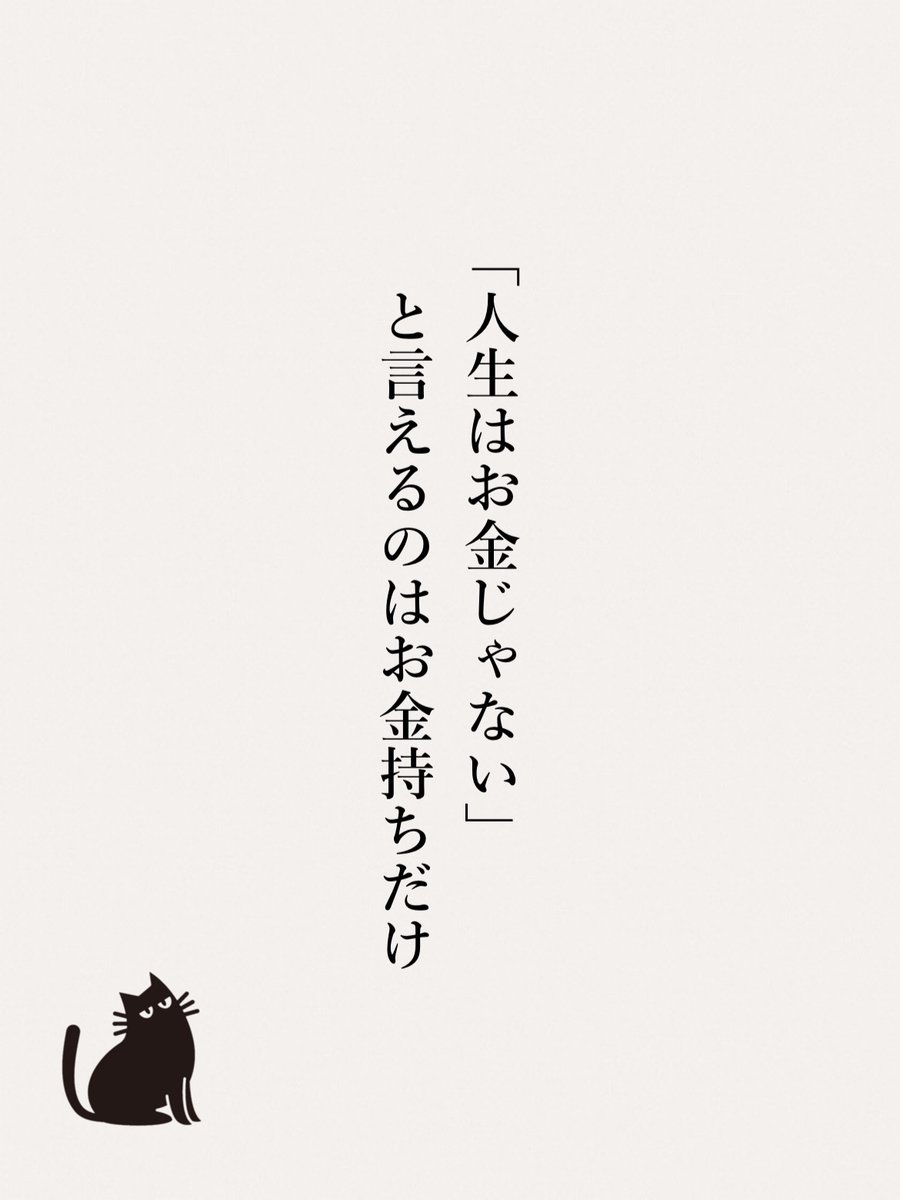 「人生はお金じゃない」
と言えるのはお金持ちだけ